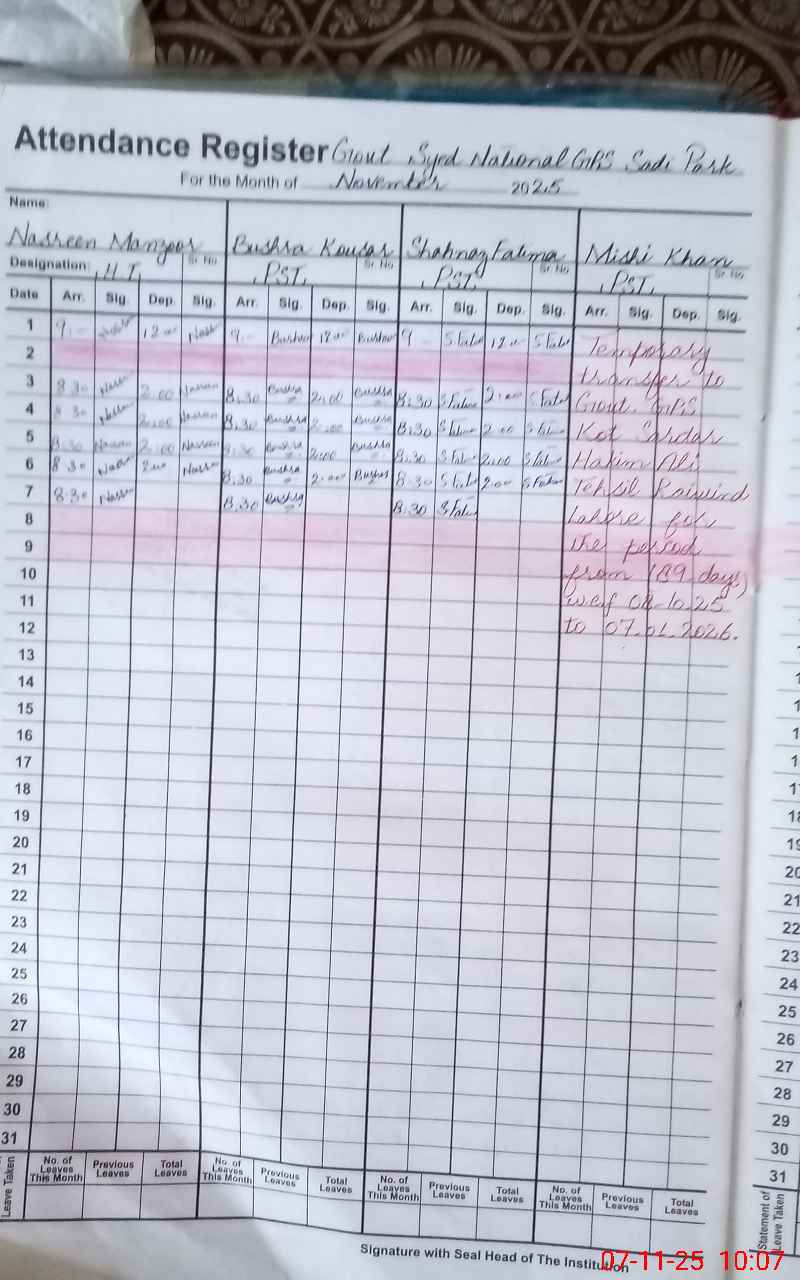 Attendance Register Govt Syed National GPS Sadi Park
For the Month of November 2025
Name:
Nasreen Manzoor Bushra Kousar Shahnaz Fatima Mishi Khan
Designation: H.T. Sr No PST. Sr No PST. Sr No PST. Sr No
Date Arr. Sig. Dep. Sig. Arr. Sig. Dep. Sig. Arr. Sig. Dep. Sig. Arr. Sig. Dep. Sig.
1 9 12.00 9 Bushra 12.00 Bushra 9 S.Fati 12.00 S Fati Temporary
2 transfer to
3 8.30 2.00 Nasreen 8.30 Bushra 2:00 Bushra 8.30 S Fati 2.00 S Fati Govt. GPS
4 8.30 2:00 Nasreen 8.30 Bushra 2:00 Bushra 8.30 S Fati 2.00 S Fati Kot Sardar
5 8.30 Nasreen 2:00 Nasreen 8.30 Bushra 2:00 Bushra 8.30 S Fati 2:00 S Fati Hakim Ali
6 8.30 2.00 8.30 Bushra 2.00 Bushra 8.30 S Fati 2.00 S Fati Tehsil Raiwind
7 8.30 8.30 Bushra 8.30 S Fati Lahore for
8 the period
9 from (89 days)
10 wef 08.10.25
11 to 07.01.2026.
12
13
14
15
16
17
18
19
20
21
22
23
24
25
26
27
28
29
30
31
Leave Taken No. of Leaves This Month Previous Leaves Total Leaves No. of Leaves This Month Previous Leaves Total Leaves No. of Leaves This Month Previous Leaves Total Leaves No. of Leaves This Month Previous Leaves Total Leaves
Signature with Seal Head of The Institution
18
19
20
21
22
23
24
25
26
27
28
29
30
31
Statement of Leave Taken
07-11-25 10:07